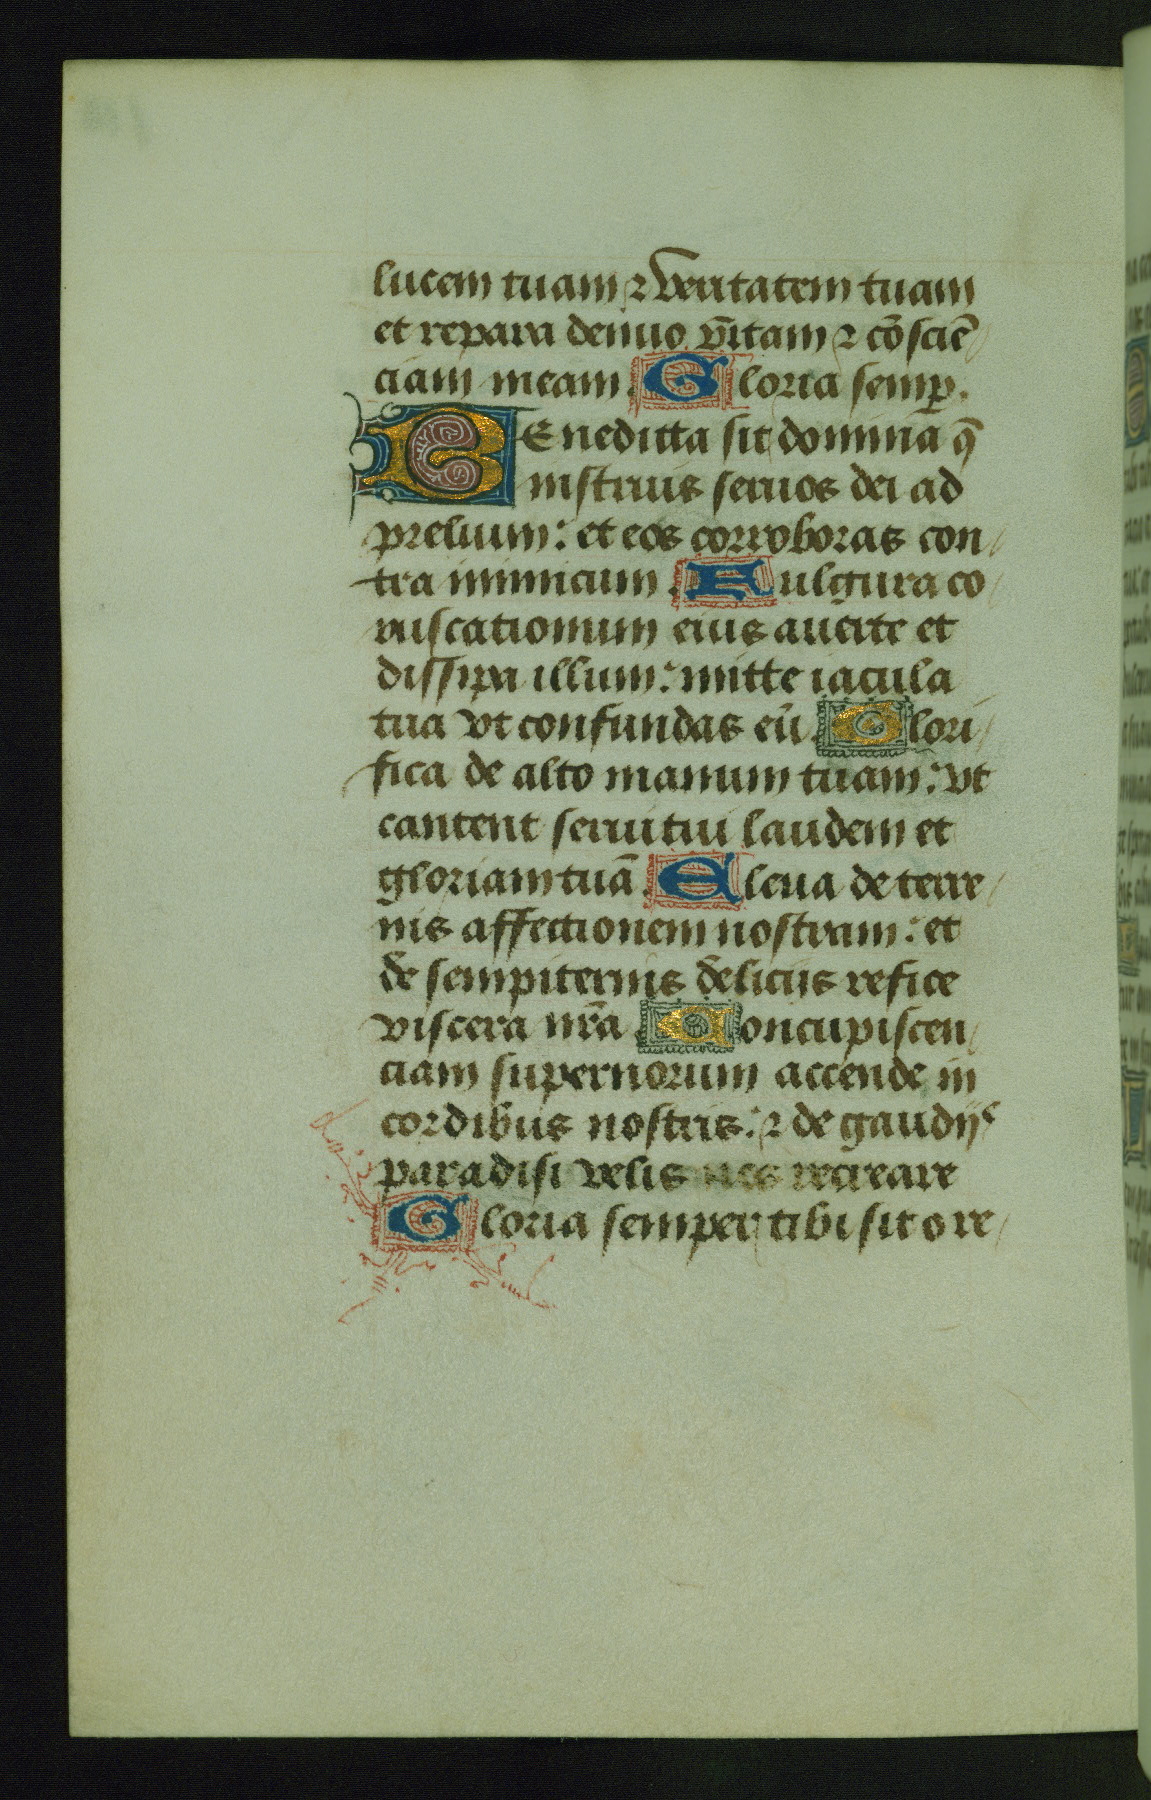 lucem tuam ⁊ veritatem tuam
et repara denuo v̄itam ⁊ cōsciē
ciam meam. Gloria semꝑ.
BEnedicta sit domina q̄
instruis seruos dei ad
prelium: et eos corroboras con
tra inimicum. Fulgura co
ruscationum eius aucite et
dissipa illum: mitte iacula
tua vt confundas eū. Glori
fica de alto manum tuam: vt
cantent serui tui laudem et
gloriam tuā. Eleua de terre
nis affectionem nostram: et
de sempiternis deliciis refice
viscera nr̄a. Concupiscen
ciam supernorum accende in
cordibus nostris: ⁊ de gaudijs
paradisi velis nos recreare
Gloria semper tibi sit o re